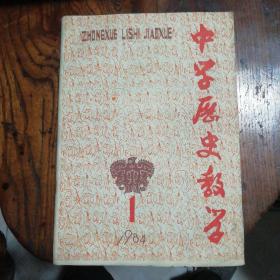 ZHONGXUE LISHI JIAOXUE
中学历史教学
1
1984